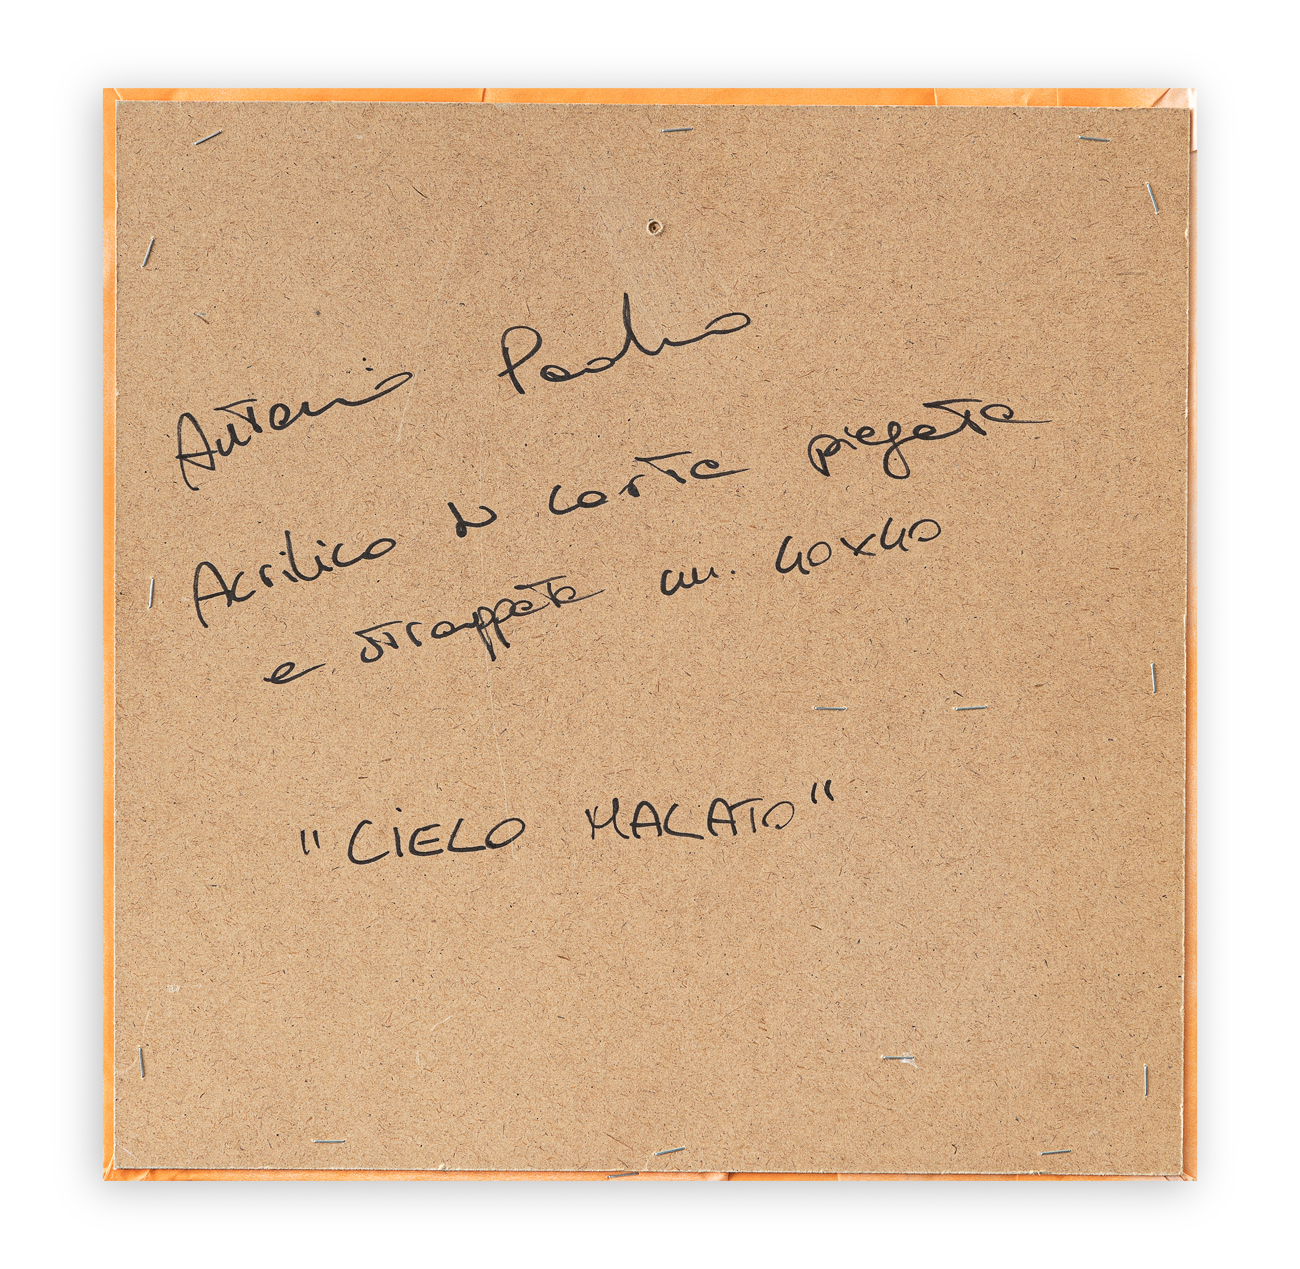 Antonio
Acrilico su carta piegata
e strappata cm. 40x40
"CIELO MALATO"